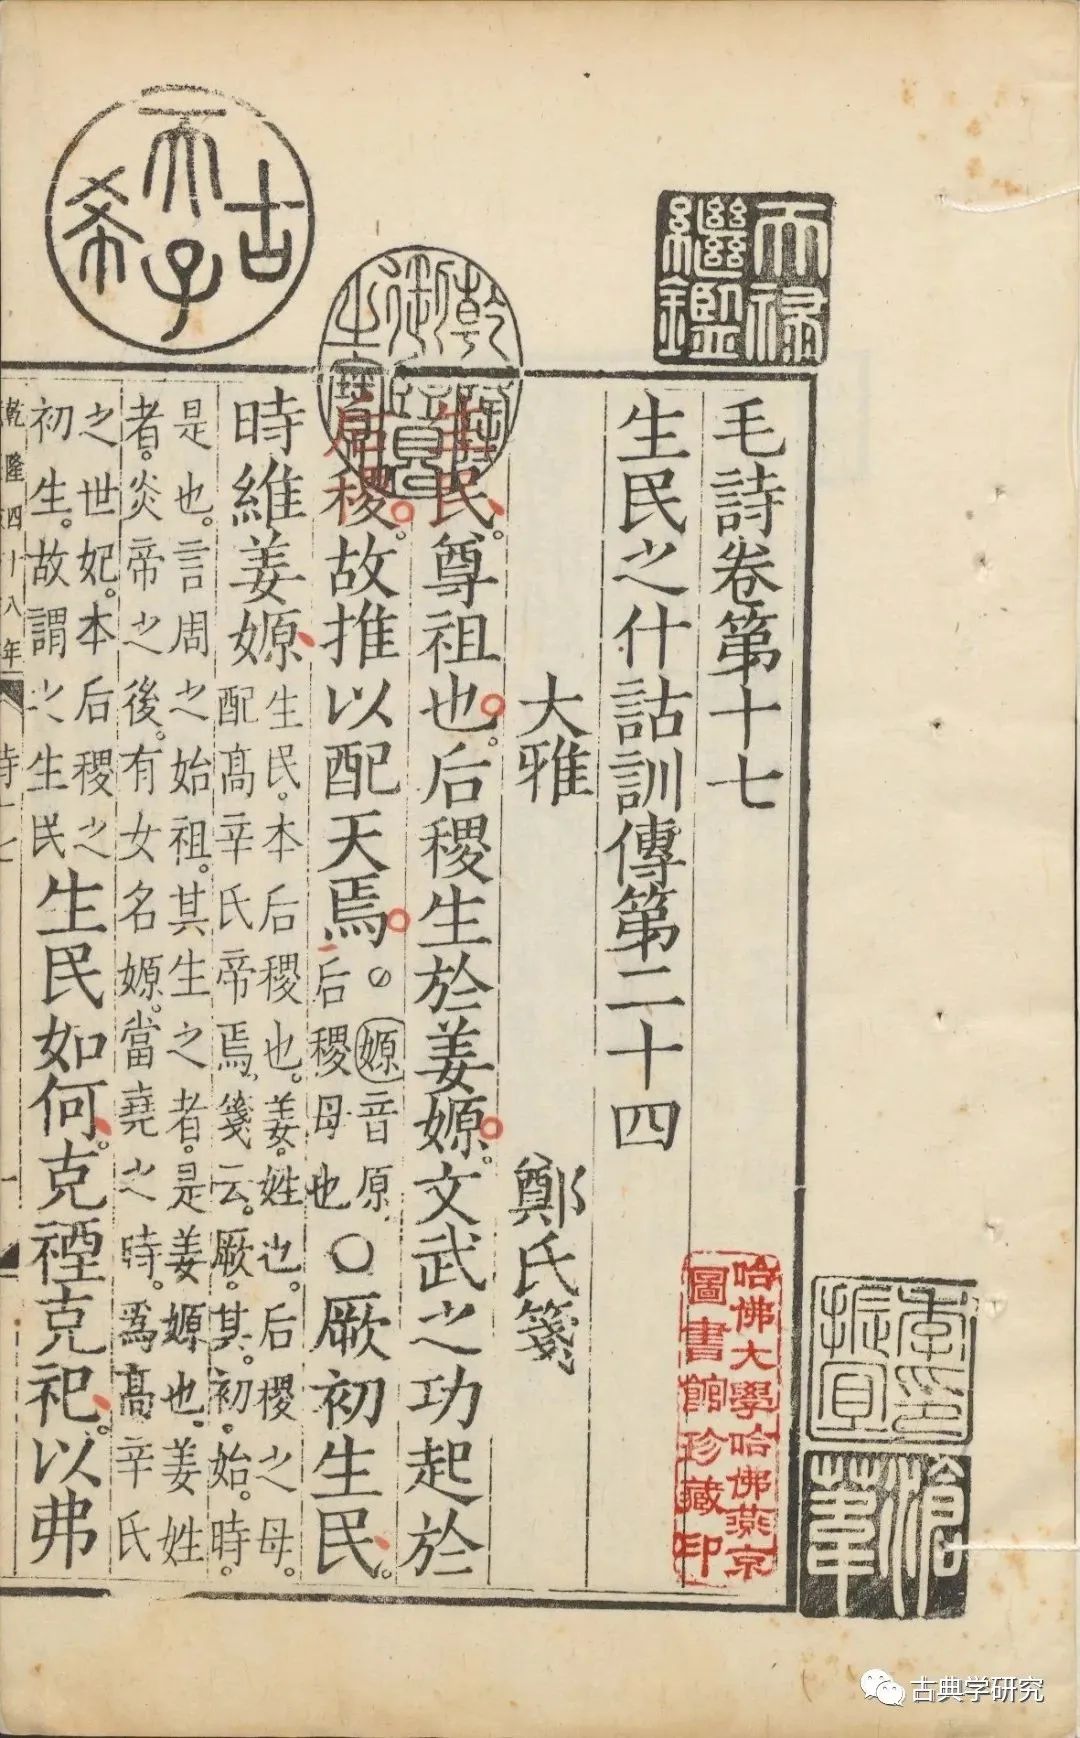 毛詩卷第十七
生民之什詁訓傳第二十四
大雅 鄭氏箋
生民。尊祖也。后稷生於姜嫄。文武之功起於
后稷。故推以配天焉。嫄音原后稷母也〇厥初生民。
時維姜嫄生民。本后稷也。姜。姓也。后稷之母。配高辛氏帝焉。箋云。厥。其。初。始。時。
是也。言周之始祖。其生之者。是姜嫄也。姜姓者。炎帝之後。有女名嫄。當堯之時。為高辛氏
之世妃。本后稷之初生。故謂之生民生民如何。克禋克祀。以弗
乾隆四十八年
詩十七
一
古希天子
乾隆御覽之寶
天祿繼鑑
季振宜印
滄葦
哈佛大學哈佛燕京圖書館珍藏印
古典学研究